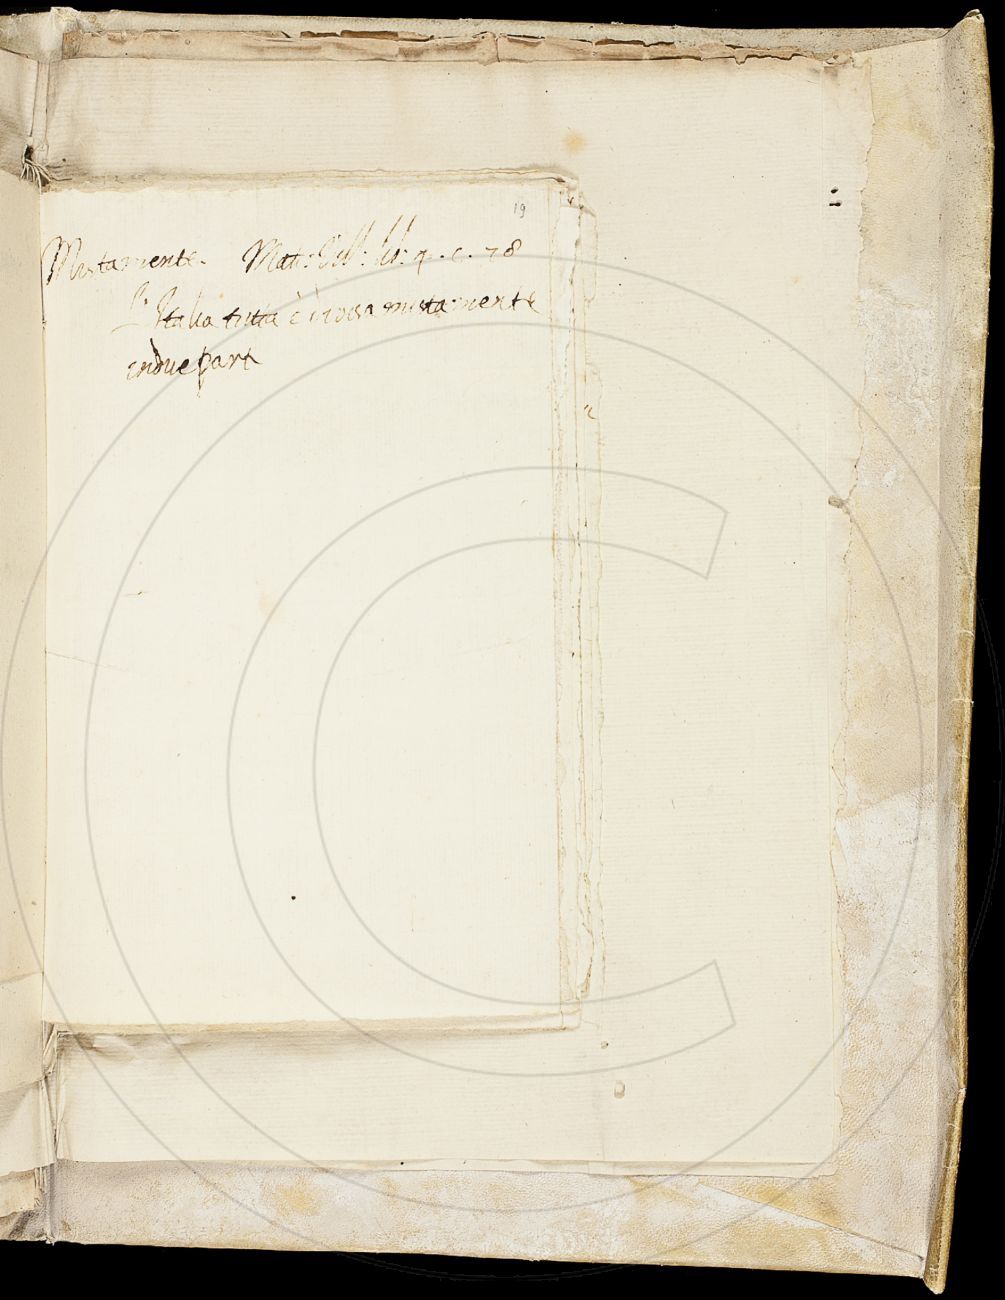 19
Mistamente. Matt: Vill: lib: 9. c. 78
L'Italia tutta è divisa mistamente
in due part